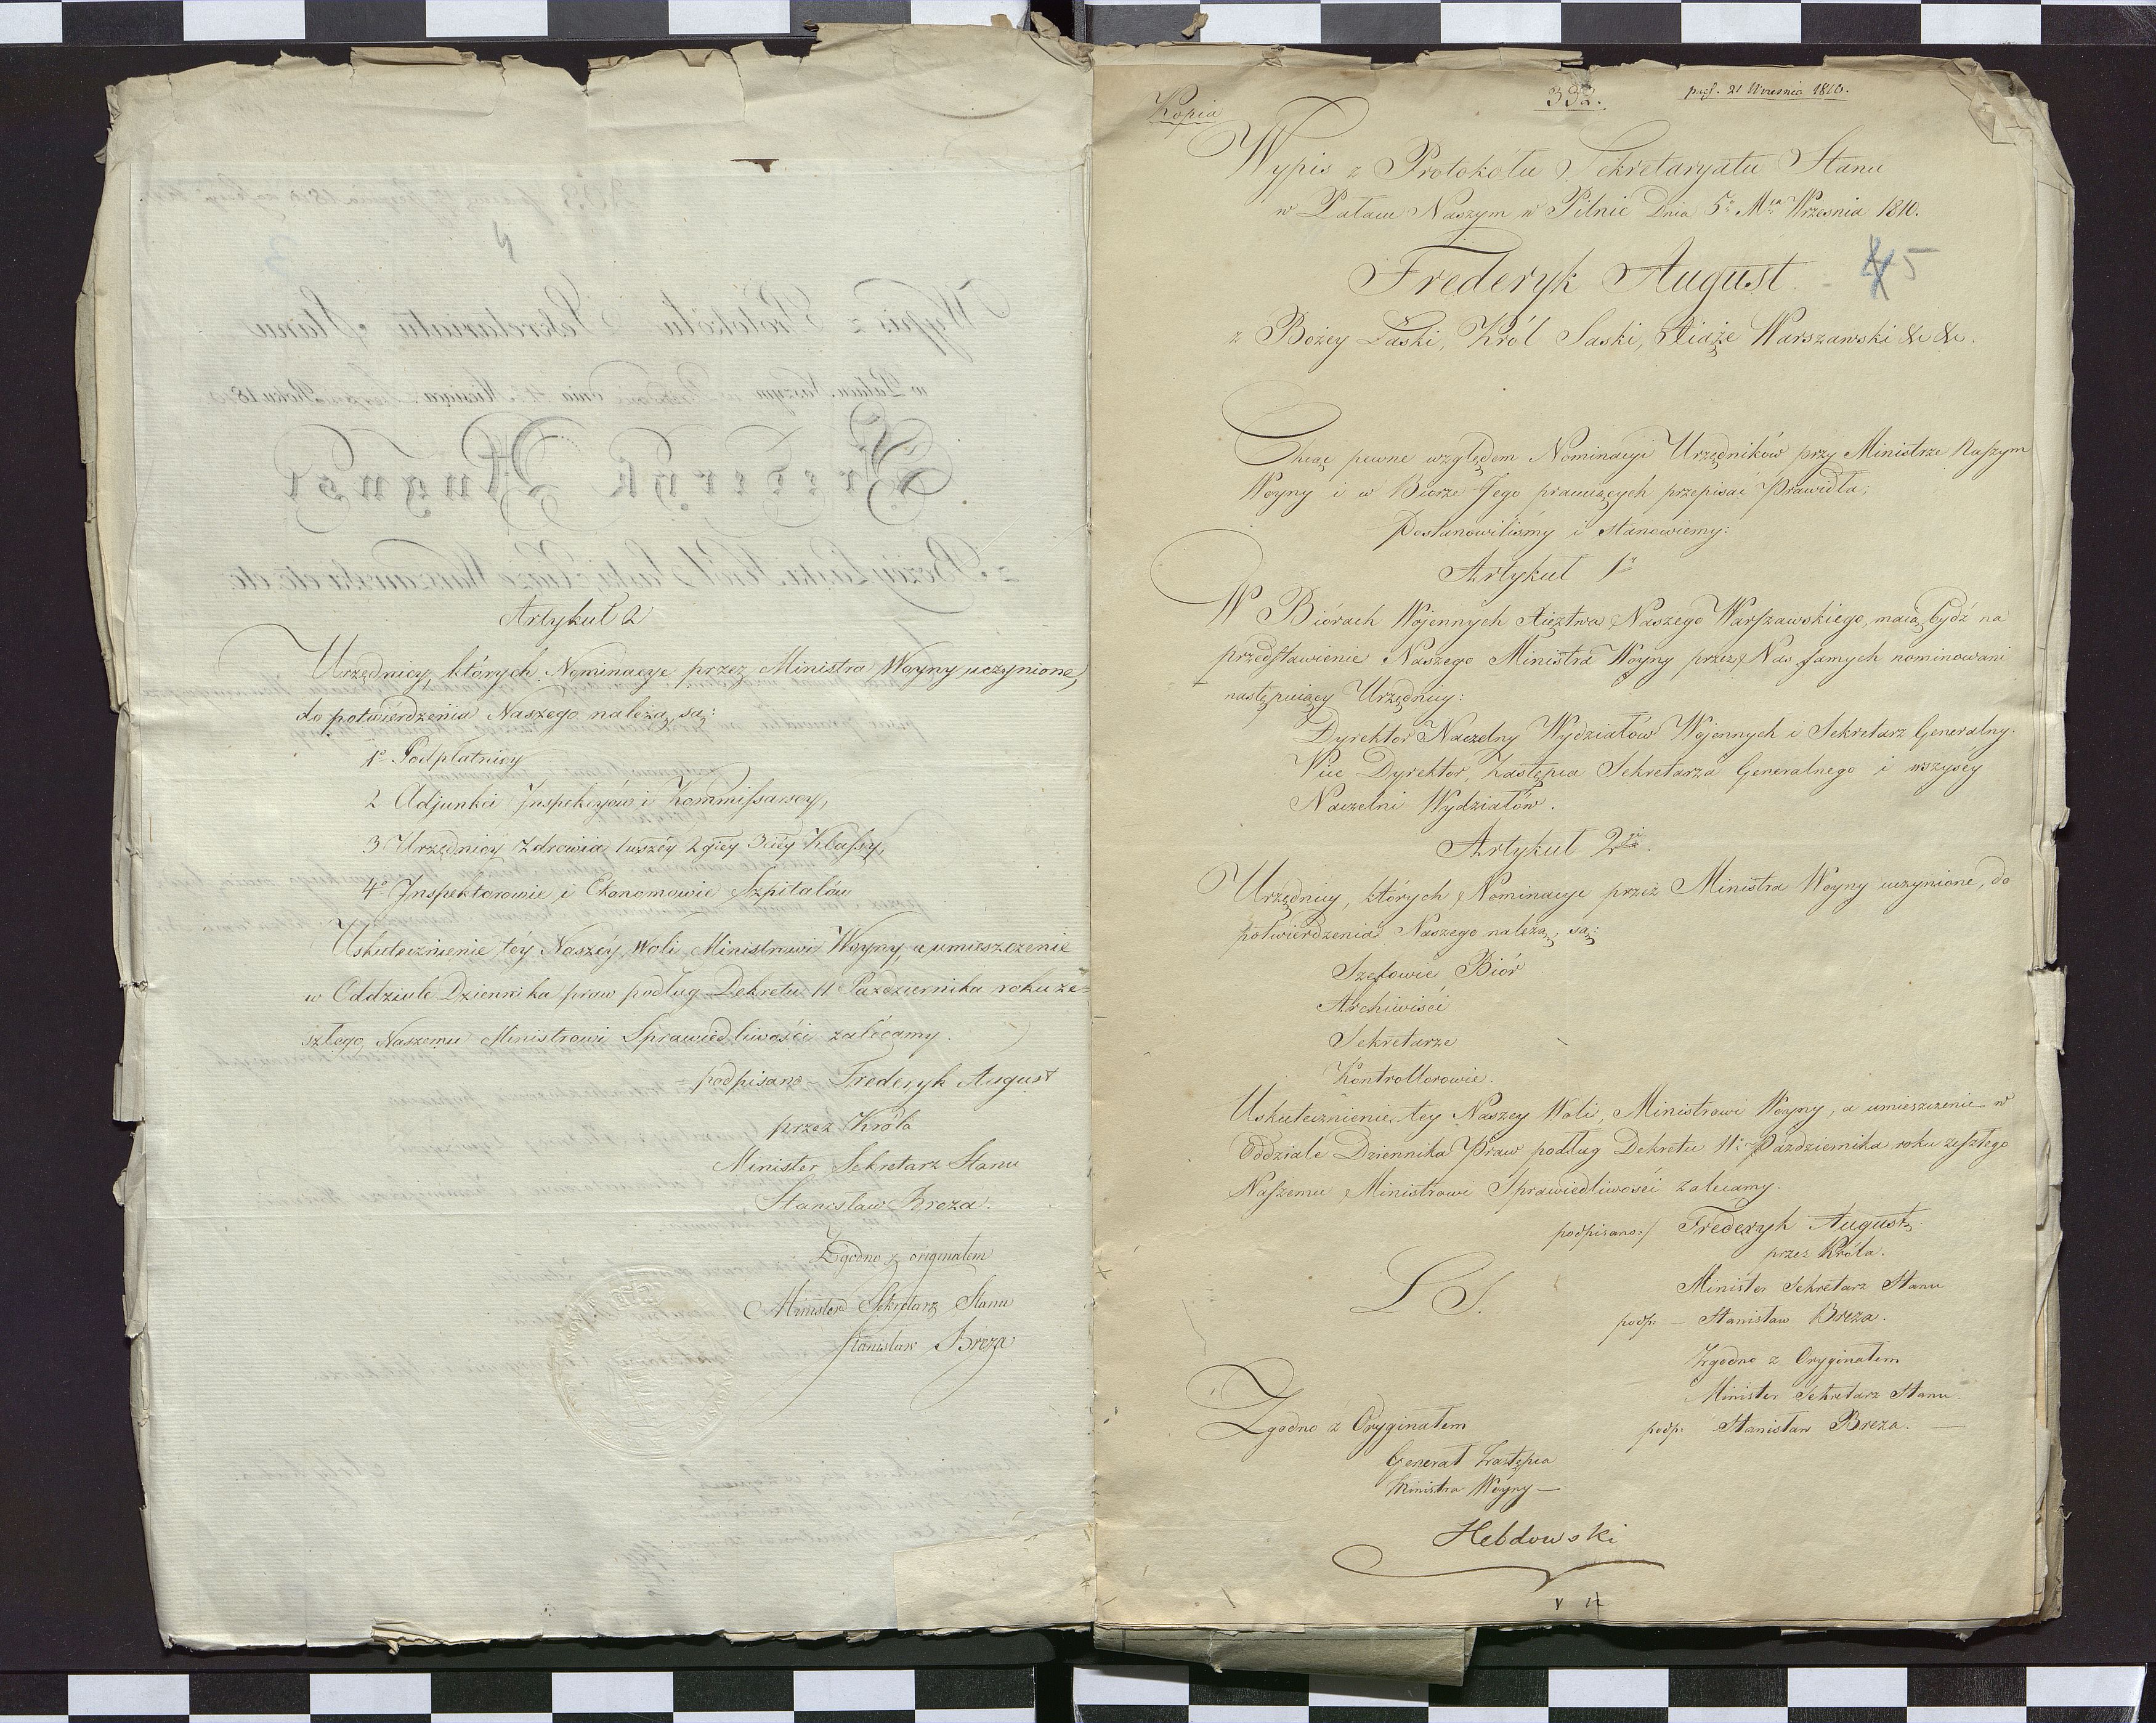 Artykuł 2
Urzędnicy, których Nominacye przez Ministra Woyny uczynione,
do potwierdzenia Naszego należą, są:
1º Podpłatnicy
2 Adjunkci Inspekcyów i Kommissarscy,
3 Urzędnicy Zdrowia 1wszéy 2giéy 3ciéy Klassy,
4º Inspektorowie i Ekonomowie Szpitalów
Uskutecznienie téy Naszéy Woli Ministrowi Woyny, a umieszczenie
w Oddziale Dziennika praw podług Dekretu 11 Pazdziernika roku ze-
szłego, Naszemu Ministrowi Sprawiedliwości zalécamy.
= podpisano - Frederyk August
przez Króla
Minister Sekretarz Stanu
Stanisław Breza.
Zgodno z originałem
Minister Sekretarz Stanu
Stanisław Breza
Kopia
332.
21 Września 1810.
Wypis z Protokółu Sekretaryatu Stanu
w Pałacu Naszym w Pilnic Dnia 5º Mca Września 1810.
Frederyk August
5
z Bożey Łaski, Król Saski, Xiąże Warszawski &c &c.
Chcąc pewne względem Nominacyi Urzędników przy Ministrze Naszym
Woyny i w Biorze Jego pracuiących przepisać Prawidła;
Postanowiliśmy i stanowiemy:
Artykuł 1º
W Biórach Wojennych Xięztwa Naszego Warszawskiego, maią bydź na
przedstawienie Naszego Ministra Woyny przez Nas samych nominowani
następuiący Urzędnicy:
Dyrektor Naczelny Wydziałów Wojennych i Sekretarz Generalny.
Vice Dyrektor, Zastępca Sekretarza Generalnego i wszyscy
Naczelni Wydziałów.
Artykuł 2gi.
Urzędnicy, których Nominacye przez Ministra Woyny uczynione, do
potwierdzenia Naszego należą, są:
Szefowie Biór
Archiwiści
Sekretarze
Kontrollorowie.
Uskutecznienie tey Naszey Woli, Ministrowi Woyny, a umieszczenie w
Oddziale Dziennika Praw podług Dekretu 11º Października roku zeszłego
Naszemu Ministrowi Sprawiedliwości zalecamy.
podpisano:/ Frederyk August.
przez Króla.
L S.
Minister Sekretarz Stanu
podp: - Stanisław Breza.
Zgodno z Oryginałem
Minister Sekretarz Stanu.
podp: Stanisław Breza. —
Zgodno z Oryginałem
Generał Zastępca
Ministra Woyny —
Hebdowski